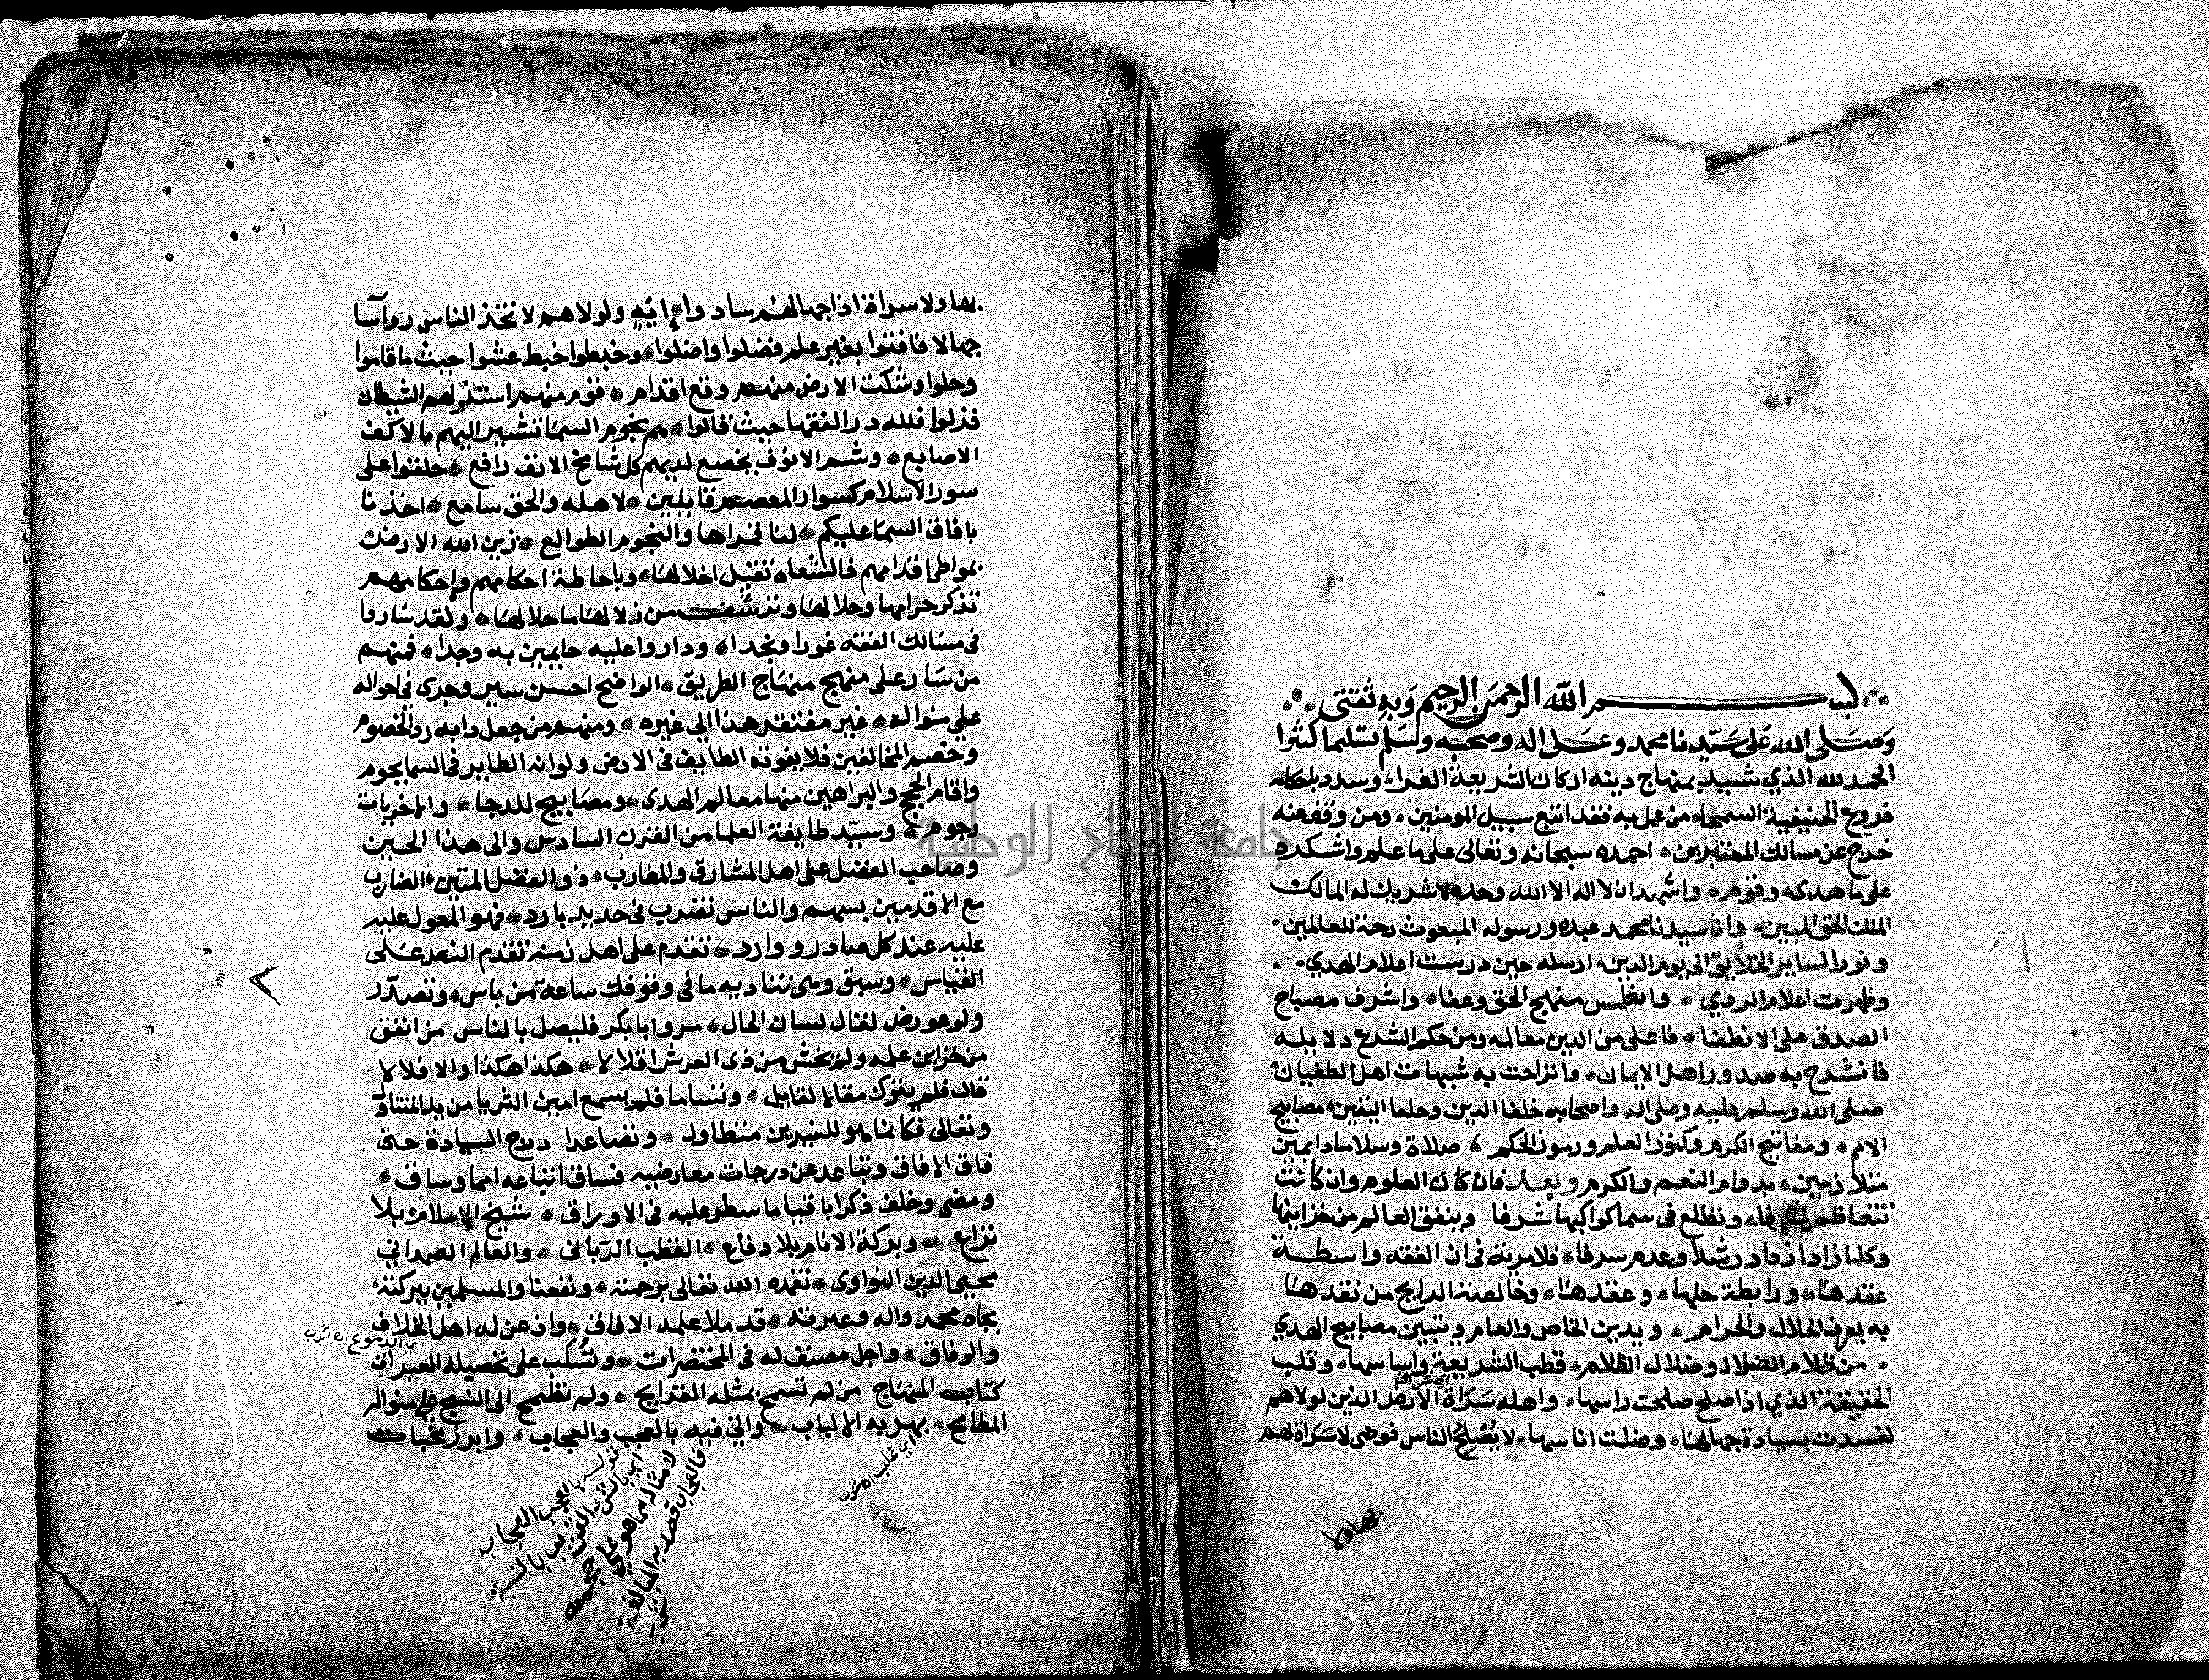 بسم الله الرحمن الرحيم وبه ثقتي
وصلى الله على سيدنا محمد وعلى اله وصحبه وسلم تسليما كثيرا
الحمد لله الذي شيد بمنهاج دينه اركان الشريعة الغراء وسدد باحكامه
فروع الحنيفية السمحاء من عمل به فقد اتبع سبيل المومنين ومن وقف عنه
خرج عن مسالك المعتبرين احمده سبحانه وتعالى على ما علم واشكره
على ما هدى وقوم واشهد ان لا اله الا الله وحده لا شريك له المالك
الملك الحق المبين وان سيدنا محمد عبده ورسوله المبعوث رحمة للعالمين
ونورا لساير الخلايق الى يوم الدين ارسله حين درست اعلام الهدي
وظهرت اعلام الردي وانطمس منهج الحق وعفا واشرف مصباح
الصدق على الانطفا فاعلى من الدين معالمه ومن حكم الشرع دلايله
فانشرح به صدور اهل الايمان وانزاحت به شبهات اهل الطغيان
صلى الله وسلم عليه وعلى اله واصحابه خلفا الدين وحلفا اليقين مصابيح
الامم ومفاتيح الكرم وكنوز العلم ورموز الحكم صلاة وسلاما دايمين
متلازمين بدوام النعم والكرم وبعد فان كان العلوم وان كانت
تتعاظم شرفا وتطلع في سما كواكبها شرفا وينفق العالم من خزاينها
وكلما زاد ازداد رشدا وعدم سرفا فلا مرية في ان الفقه واسطة
عقدها ورابطة حلها وعقدها وخالصة الرايج من نقدها
به يعرف الحلال والحرام ويدين الخاص والعام وتبين مصابيح الهدي
من ظلام الضلال وضلال الظلام قطب الشريعة واساسها وقلب
الحقيقة الذي اذا صلح صلحت راسها واهله سراة الارض الذين لولاهم
لفسدت بسيادة جهالها وضلت اناسها لا يصلح الناس فوضى لا سراة لهم
بها ولا
بها ولا سراة اذا جهالهم ساد واو ولولاهم لاتخذ الناس رواسا
جهالا فافتوا بغير علم فضلوا واضلوا وخبطوا خبط عشوا حيث ما قاموا
وحلوا وشكت الارض منهم وقع اقدام قوم منهم استذلهم الشيطان
فزلوا فلله در الفقها حيث قالوا هم نجوم السما تشير اليهم بالاكف
الاصابع وشم الانوف يخضع لديهم كل شامخ الانف رافع حلقوا على
سور الاسلام كسوار المعصم قايلين لاهله والحق سامع اخذنا
بافاق السما عليكم لنا قمراها والنجوم الطوالع زين الله الارض
بمواطى اقدامهم فالشفاه تقبل اخلالها وباحاطة احكامهم واحكامهم
تذكر حرامها وحلالها وترشفت من زلالها ما حلالها ولقد ساروا
في مسالك الفقه غورا ونجدا وداروا عليه هايمين به وجدا فمنهم
من سار على منهج منهاج الطريق الواضح احسن سير وجرى في احواله
على منواله غير مفتقر هذا الي غيره ومنهم من جعل دابه رد الخصوم
وخصم المخالفين فلا يفوته الطايف في الارض ولو انه الطاير في السما يحوم
واقام الحجج والبراهين منها معالم الهدى ومصابيح للدجا والاخريات
رجوم وسيد طايفة العلما من القرن السادس والى هذا الحين
وصاحب الفضل على اهل المشارق والمغارب ذو الفضل المتين الضارب
مع الاقدمين بسهم والناس تضرب في حديد بارد فهو المعول عليه
عليه عند كل صادر ووارد تقدم على اهل زمنه تقدم النص على
القياس وسبق وهي تناديه ما في وقوفك ساعة من باس وتصدر
ولو عورض لقال لسان الحال مروا ابا بكر فليصل بالناس من انفق
من خزاين علمه ولم يخش من ذى العرش اقلالا هكذا هكذا والا فلا لا
قال فلم يترك مقالا لقايل وتساما فلم يسمع امين الثريا من يد المتناول
وتعالى فكانما هو للنيرين متطاول وتصاعد درج السيادة حتى
فاق الافاق وتباعد عن درجات معارضيه فساق اتباعه امما وساق
ومضى وخلف ذكرا باقيا ما سطر عليه في الاوراق شيخ الاسلام بلا
نزاع وبركة الانام بلا دفاع القطب الرباني والعالم الصمداني
محيي الدين النواوى تغمده الله تعالى برحمته ونفعنا والمسلمين ببركته
بجاه محمد واله وعترته قد ملا علمه الافاق واذعن له اهل الخلاف
والوفاق واجل مصنف له في المختصرات وتسكب على تحصيله العبرات
كتاب المنهاج من لم تسمح بمثله القرايح ولم تطمح الى النسج على منواله
المطامح بهر به الالباب واتي فيه بالعجب والعجاب وابرز مخبات
اي الدموع اه شرب
اي غلب اه شرب
قوله بالعجب العجاب
اي بالشى الغريب بالنسبة
لامثاله مما هو على حجمه
فالعجاب قصد به المبالغة
شرب
جامعة النجاح الوطنية